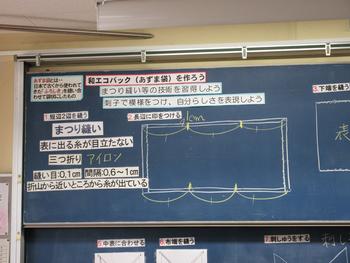 あずま袋とは…
日本で古くから使われて
きた「ふろしき」を縫い合
わせて袋状にしたもの
和エコバック(あずま袋)を作ろう
まつり縫い等の技術を習得しよう
刺子で模様をつけ、自分らしさを表現しよう
1.短辺2辺を縫う
まつり縫い
表に出る糸が目立たない
三つ折り アイロン
縫い目:0.1cm 間隔:0.6~1cm
折山から近いところから糸が出ている
2.長辺に印をつける
1cm
3.下端を縫う
表
5.中表に合わせる
6.布端を縫う
7.刺しゅうをする
刺し